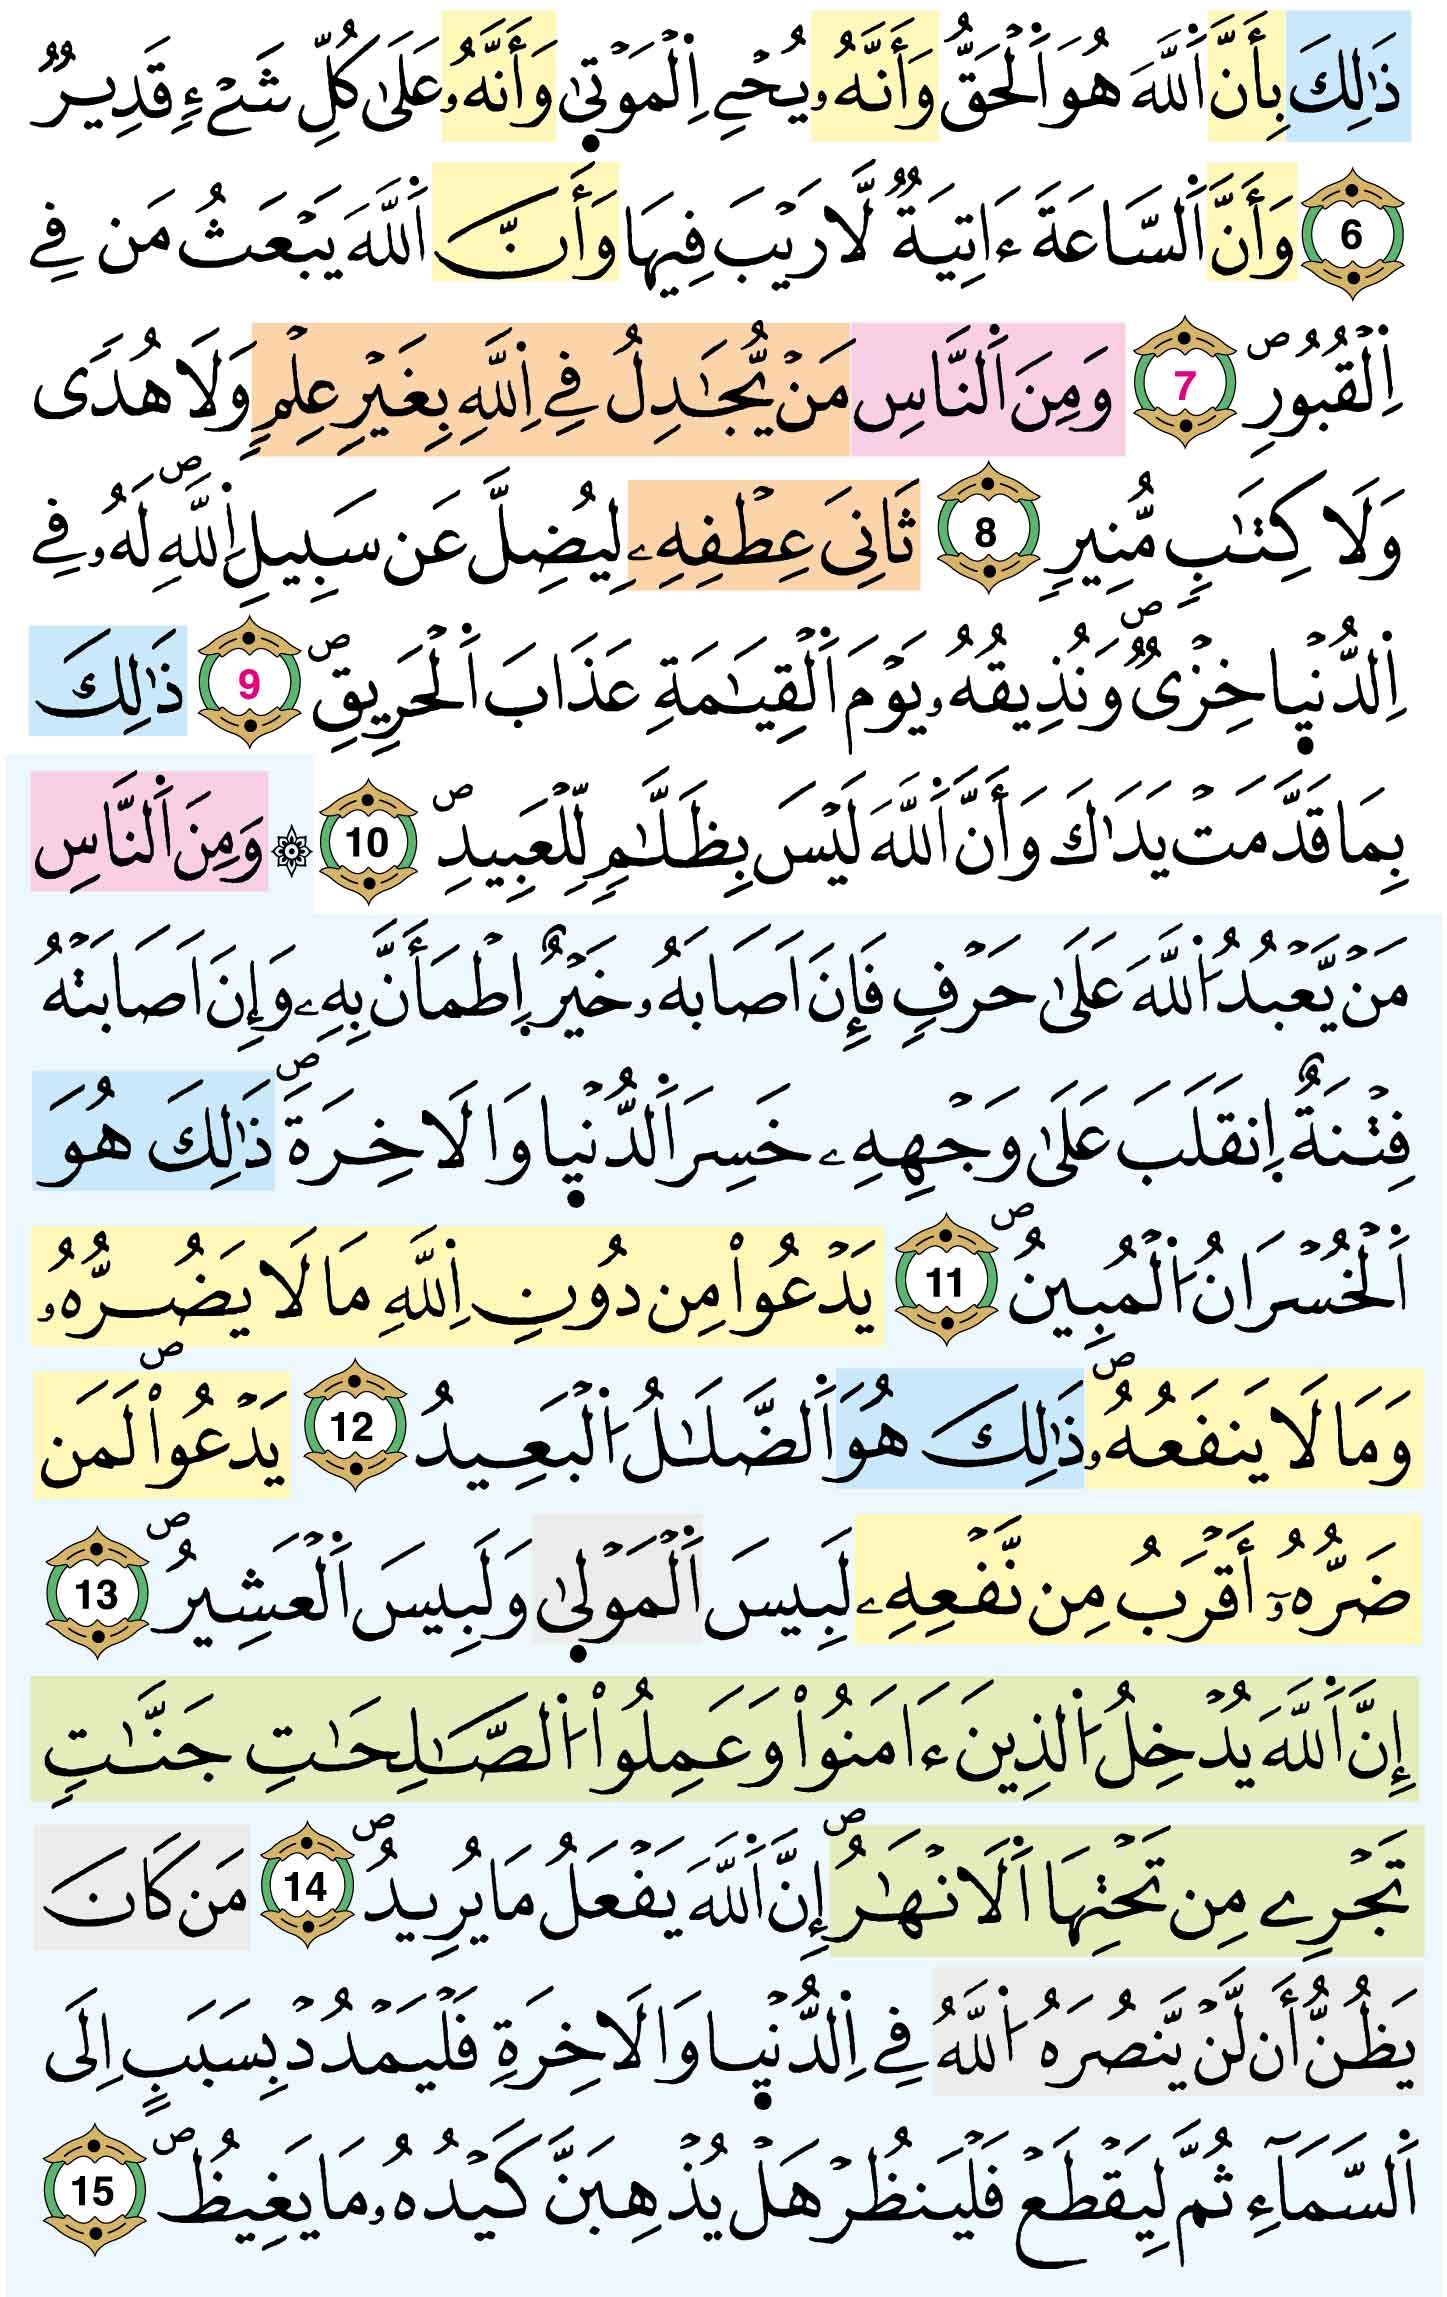 ذَٰلِكَ بِأَنَّ اَ۬للَّهَ هُوَ اَ۬لْحَقُّ وَأَنَّهُۥ يُحْيِ اِ۬لْمَوْت۪يٰ وَأَنَّهُۥ عَلَىٰ كُلِّ شَےْءٖ قَدِيرٞ
6 وَأَنَّ اَ۬لسَّاعَةَ ءَاتِيَةٞ لَّا رَيْبَ فِيهَا وَأَنَّ اَ۬للَّهَ يَبْعَثُ مَن فِے
اِ۬لْقُبُورِۖ 7 وَمِنَ اَ۬لنَّاسِ مَنْ يُّجَٰدِلُ فِے اِ۬للَّهِ بِغَيْرِ عِلْمٖ وَلَا هُدٗى
وَلَا كِتَٰبٖ مُّنِيرٖ 8 ثَانِيَ عِطْفِهِۦ لِيُضِلَّ عَن سَبِيلِ اِ۬للَّهِۖ لَهُۥ فِے
اِ۬لدُّنْي۪ا خِزْيٞۖ وَنُذِيقُهُۥ يَوْمَ اَ۬لْقِيَٰمَةِ عَذَابَ اَ۬لْحَرِيقِۖ 9 ذَٰلِكَ
بِمَا قَدَّمَتْ يَدَٰكَ وَأَنَّ اَ۬للَّهَ لَيْسَ بِظَلَّٰمٖ لِّلْعَبِيدِۖ 10 ۞ وَمِنَ اَ۬لنَّاسِ
مَنْ يَّعْبُدُ اُ۬للَّهَ عَلَىٰ حَرْفٖ فَإِنَ اَصَابَهُۥ خَيْرٌ اِ۪طْمَأَنَّ بِهِۦ وَإِنَ اَصَابَتْهُ
فِتْنَةٌ اِ۪نقَلَبَ عَلَىٰ وَجْهِهِۦ خَسِرَ اَ۬لدُّنْي۪ا وَالَاخِرَةَۖ ذَٰلِكَ هُوَ
اَ۬لْخُسْرَانُ اُ۬لْمُبِينُۖ 11 يَدْعُواْ مِن دُونِ اِ۬للَّهِ مَا لَا يَضُرُّهُۥ
وَمَا لَا يَنفَعُهُۥۖ ذَٰلِكَ هُوَ اَ۬لضَّلَٰلُ اُ۬لْبَعِيدُۖ 12 يَدْعُواْ لَمَن
ضَرُّهُۥٓ أَقْرَبُ مِن نَّفْعِهِۦ لَبِيسَ اَ۬لْمَوْل۪يٰ وَلَبِيسَ اَ۬لْعَشِيرُۖ 13
إِنَّ اَ۬للَّهَ يُدْخِلُ اُ۬لذِينَ ءَامَنُواْ وَعَمِلُواْ اُ۬لصَّٰلِحَٰتِ جَنَّٰتٖ
تَجْرِے مِن تَحْتِهَا اَ۬لَانْهَٰرُۖ إِنَّ اَ۬للَّهَ يَفْعَلُ مَا يُرِيدُۖ 14 مَن كَانَ
يَظُنُّ أَن لَّنْ يَّنصُرَهُ اُ۬للَّهُ فِے اِ۬لدُّنْي۪ا وَالَاخِرَةِ فَلْيَمْدُدْ بِسَبَبٍ اِلَى
اَ۬لسَّمَآءِ ثُمَّ لِيَقْطَعْ فَلْيَنظُرْ هَلْ يُذْهِبَنَّ كَيْدُهُۥ مَا يَغِيظُۖ 15